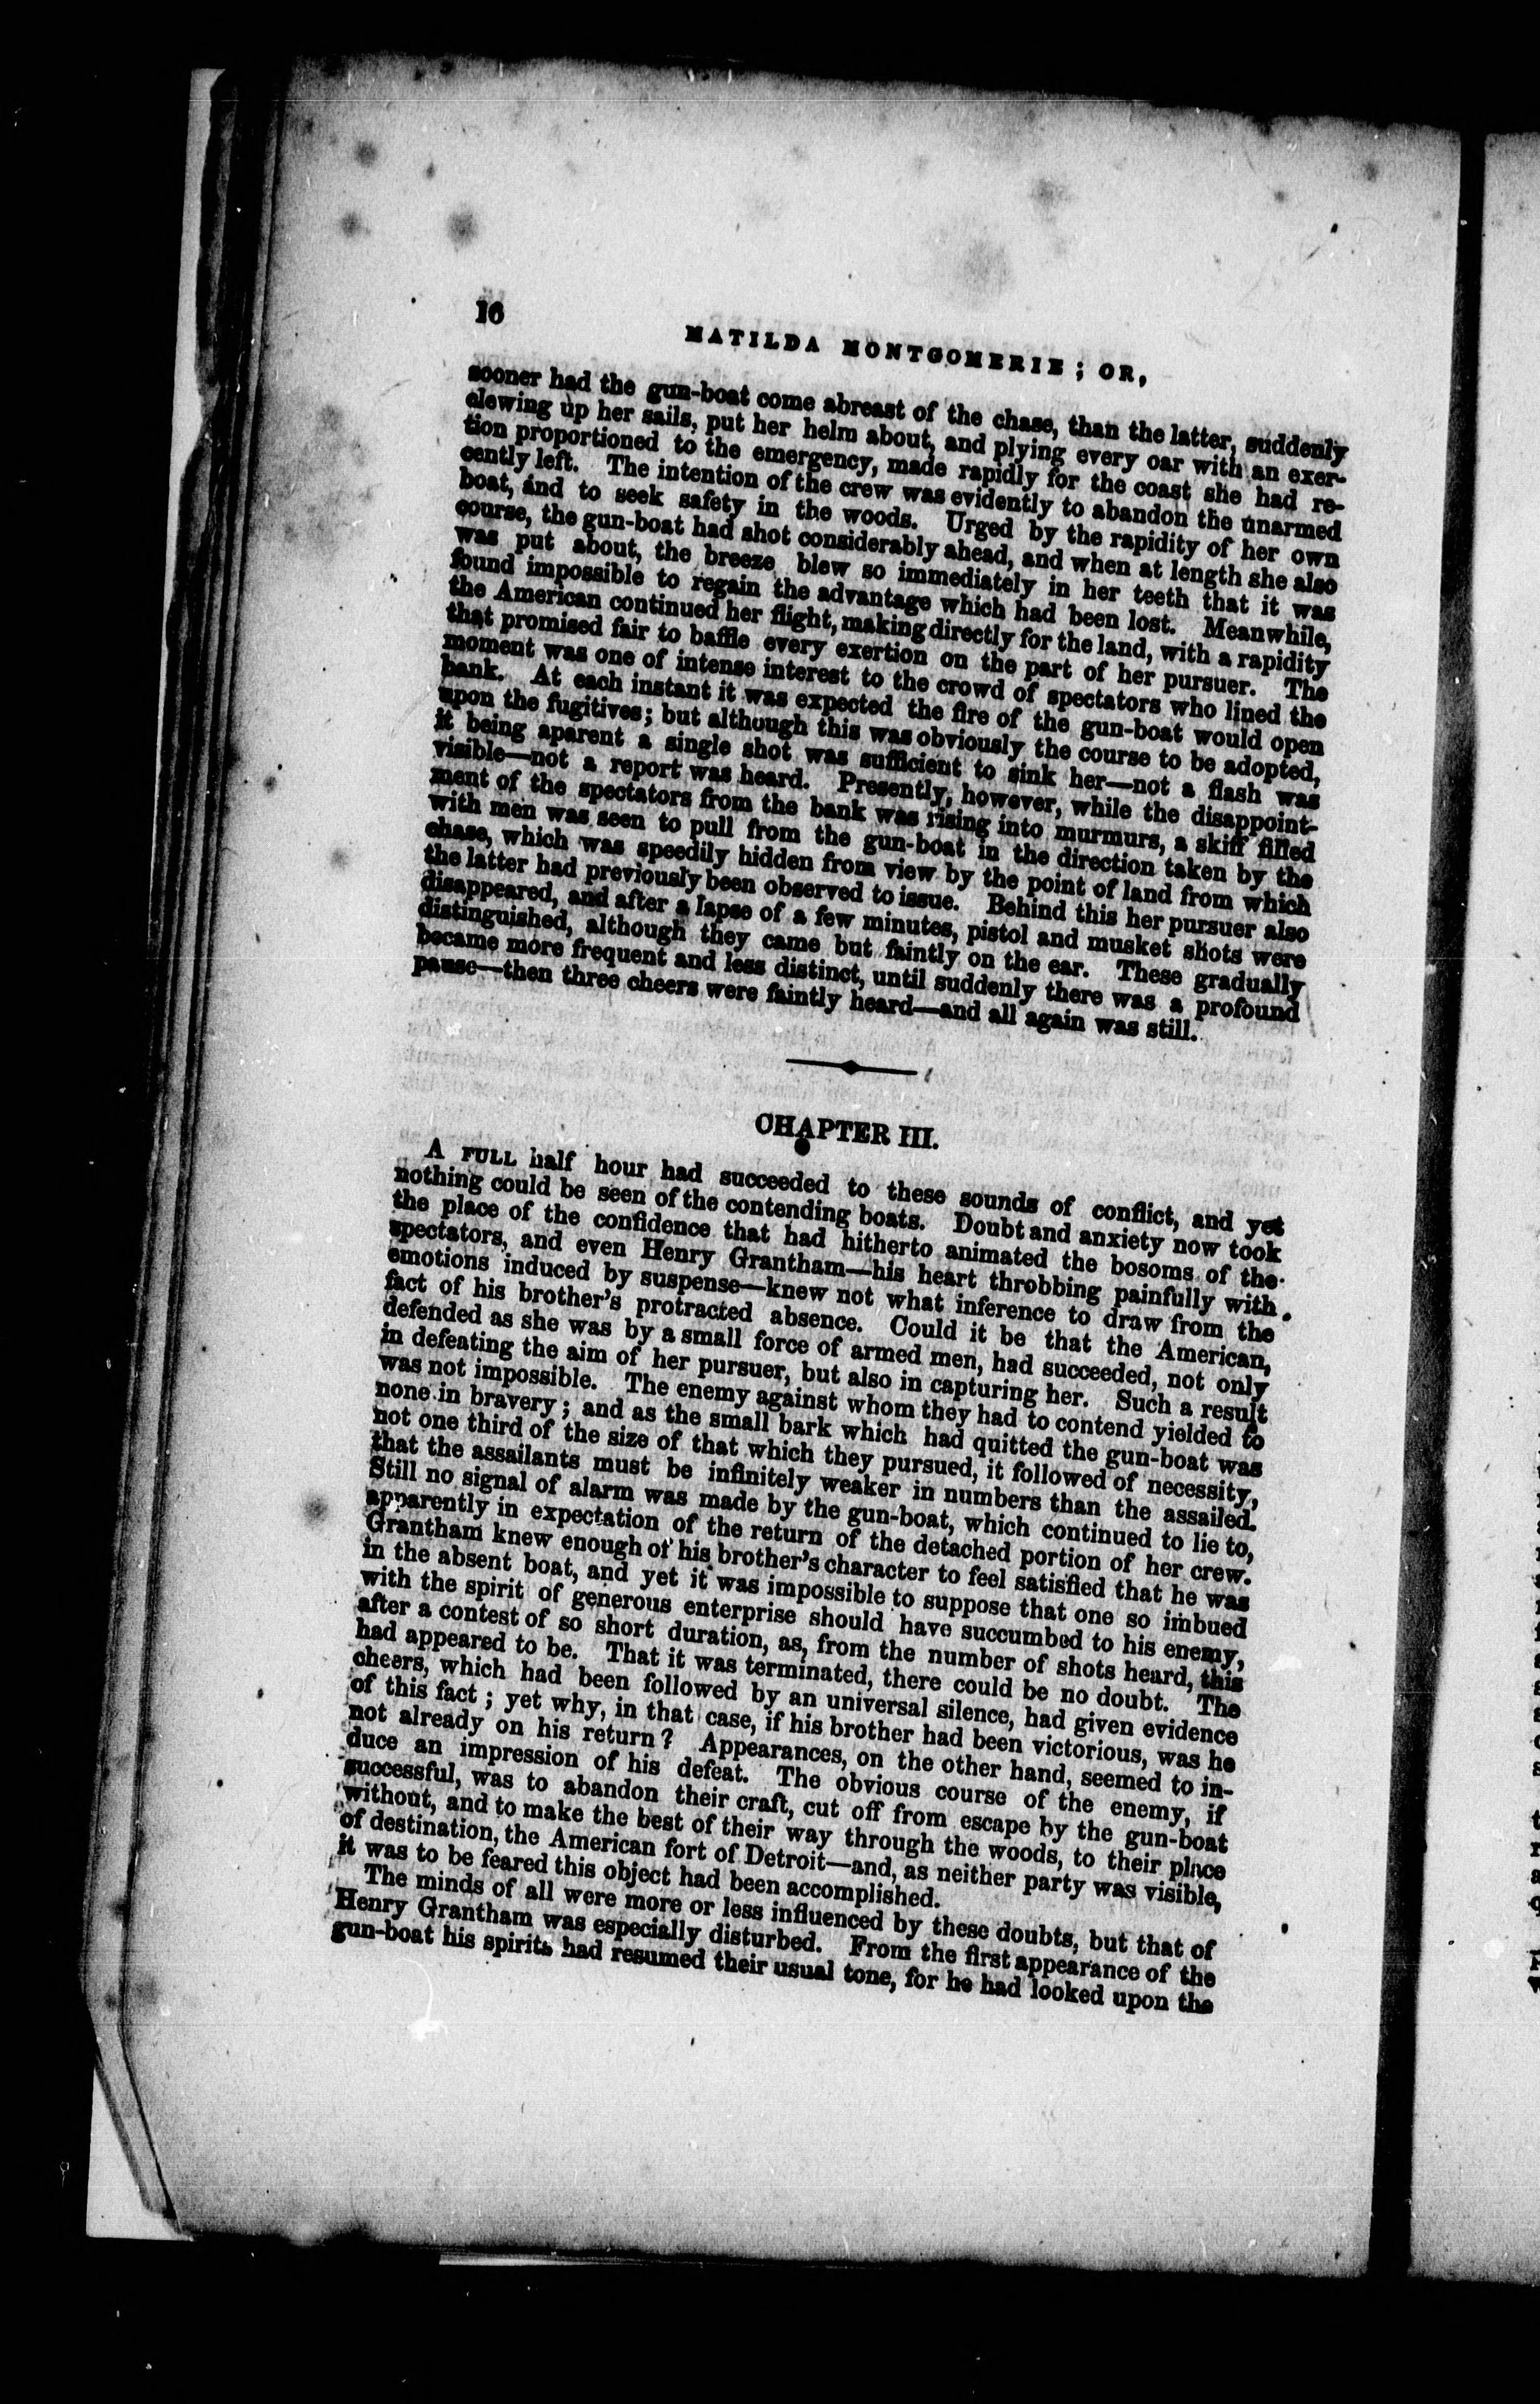 16
MATILDA MONTGOMERIE; OR,
sooner had the gun-boat come abreast of the chase, than the latter, suddenly
clewing up her sails, put her helm about, and plying every oar with an exer-
tion proportioned to the emergency, made rapidly for the coast she had re-
cently left. The intention of the crew was evidently to abandon the unarmed
boat, and to seek safety in the woods. Urged by the rapidity of her own
course, the gun-boat had shot considerably ahead, and when at length she also
was put about, the breeze blew so immediately in her teeth that it was
found impossible to regain the advantage which had been lost. Meanwhile,
the American continued her flight, making directly for the land, with a rapidity
that promised fair to baffle every exertion on the part of her pursuer. The
moment was one of intense interest to the crowd of spectators who lined the
bank. At each instant it was expected the fire of the gun-boat would open
upon the fugitives; but although this was obviously the course to be adopted,
it being aparent a single shot was sufficient to sink her—not a flash was
visible—not a report was heard. Presently, however, while the disappoint-
ment of the spectators from the bank was rising into murmurs, a skiff filled
with men was seen to pull from the gun-boat in the direction taken by the
chase, which was speedily hidden from view by the point of land from which
the latter had previously been observed to issue. Behind this her pursuer also
disappeared, and after a lapse of a few minutes, pistol and musket shots were
distinguished, although they came but faintly on the ear. These gradually
became more frequent and less distinct, until suddenly there was a profound
pause—then three cheers were faintly heard—and all again was still.
CHAPTER III.
A FULL half hour had succeeded to these sounds of conflict, and yet
nothing could be seen of the contending boats. Doubt and anxiety now took
the place of the confidence that had hitherto animated the bosoms of the
spectators, and even Henry Grantham—his heart throbbing painfully with
emotions induced by suspense—knew not what inference to draw from the
fact of his brother's protracted absence. Could it be that the American,
defended as she was by a small force of armed men, had succeeded, not only
in defeating the aim of her pursuer, but also in capturing her. Such a result
was not impossible. The enemy against whom they had to contend yielded to
none in bravery; and as the small bark which had quitted the gun-boat was
not one third of the size of that which they pursued, it followed of necessity,
that the assailants must be infinitely weaker in numbers than the assailed.
Still no signal of alarm was made by the gun-boat, which continued to lie to,
apparently in expectation of the return of the detached portion of her crew.
Grantham knew enough of his brother's character to feel satisfied that he was
in the absent boat, and yet it was impossible to suppose that one so imbued
with the spirit of generous enterprise should have succumbed to his enemy,
after a contest of so short duration, as, from the number of shots heard, this
had appeared to be. That it was terminated, there could be no doubt. The
cheers, which had been followed by an universal silence, had given evidence
of this fact; yet why, in that case, if his brother had been victorious, was he
not already on his return? Appearances, on the other hand, seemed to in-
duce an impression of his defeat. The obvious course of the enemy, if
successful, was to abandon their craft, cut off from escape by the gun-boat
without, and to make the best of their way through the woods, to their place
of destination, the American fort of Detroit—and, as neither party was visible,
it was to be feared this object had been accomplished.
The minds of all were more or less influenced by these doubts, but that of
Henry Grantham was especially disturbed. From the first appearance of the
gun-boat his spirits had resumed their usual tone, for he had looked upon the